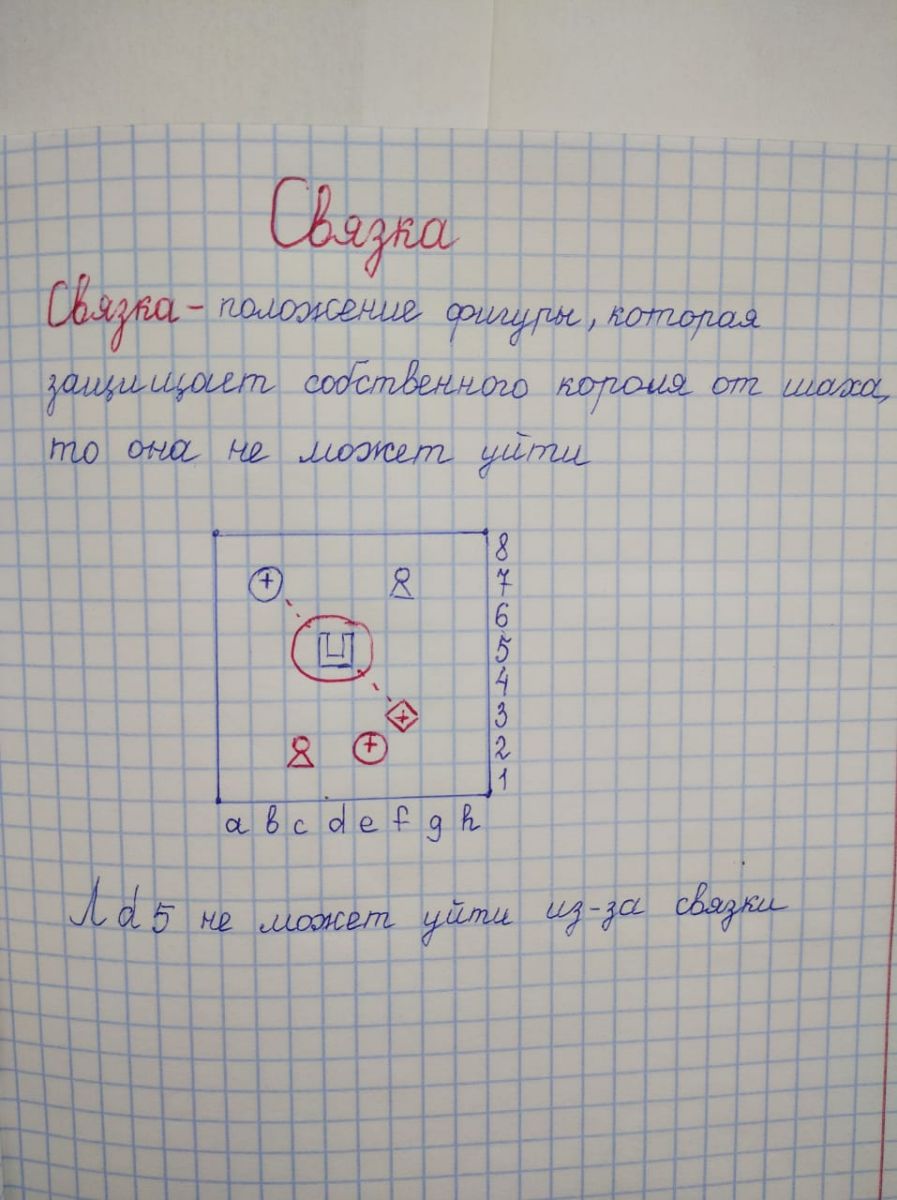 Связка
Связка - положение фигуры, которая
защищает собственного короля от шаха,
то она не может уйти
8
7
6
5
4
3
2
1
a b c d e f g h
Л d5 не может уйти из-за связки